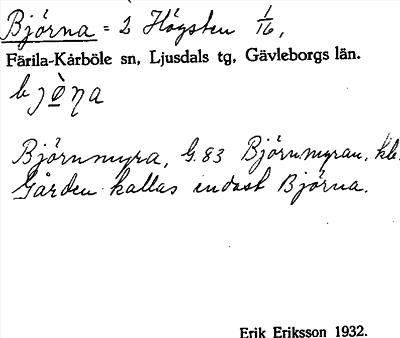 Björna = 2 Högsten 1/16,
Färila-Kårböle sn, Ljusdals tg, Gävleborgs län.
Björnmyra, G. 83 Björnmyran, kle.
Gården kallas endast Björna.
Erik Eriksson 1932.